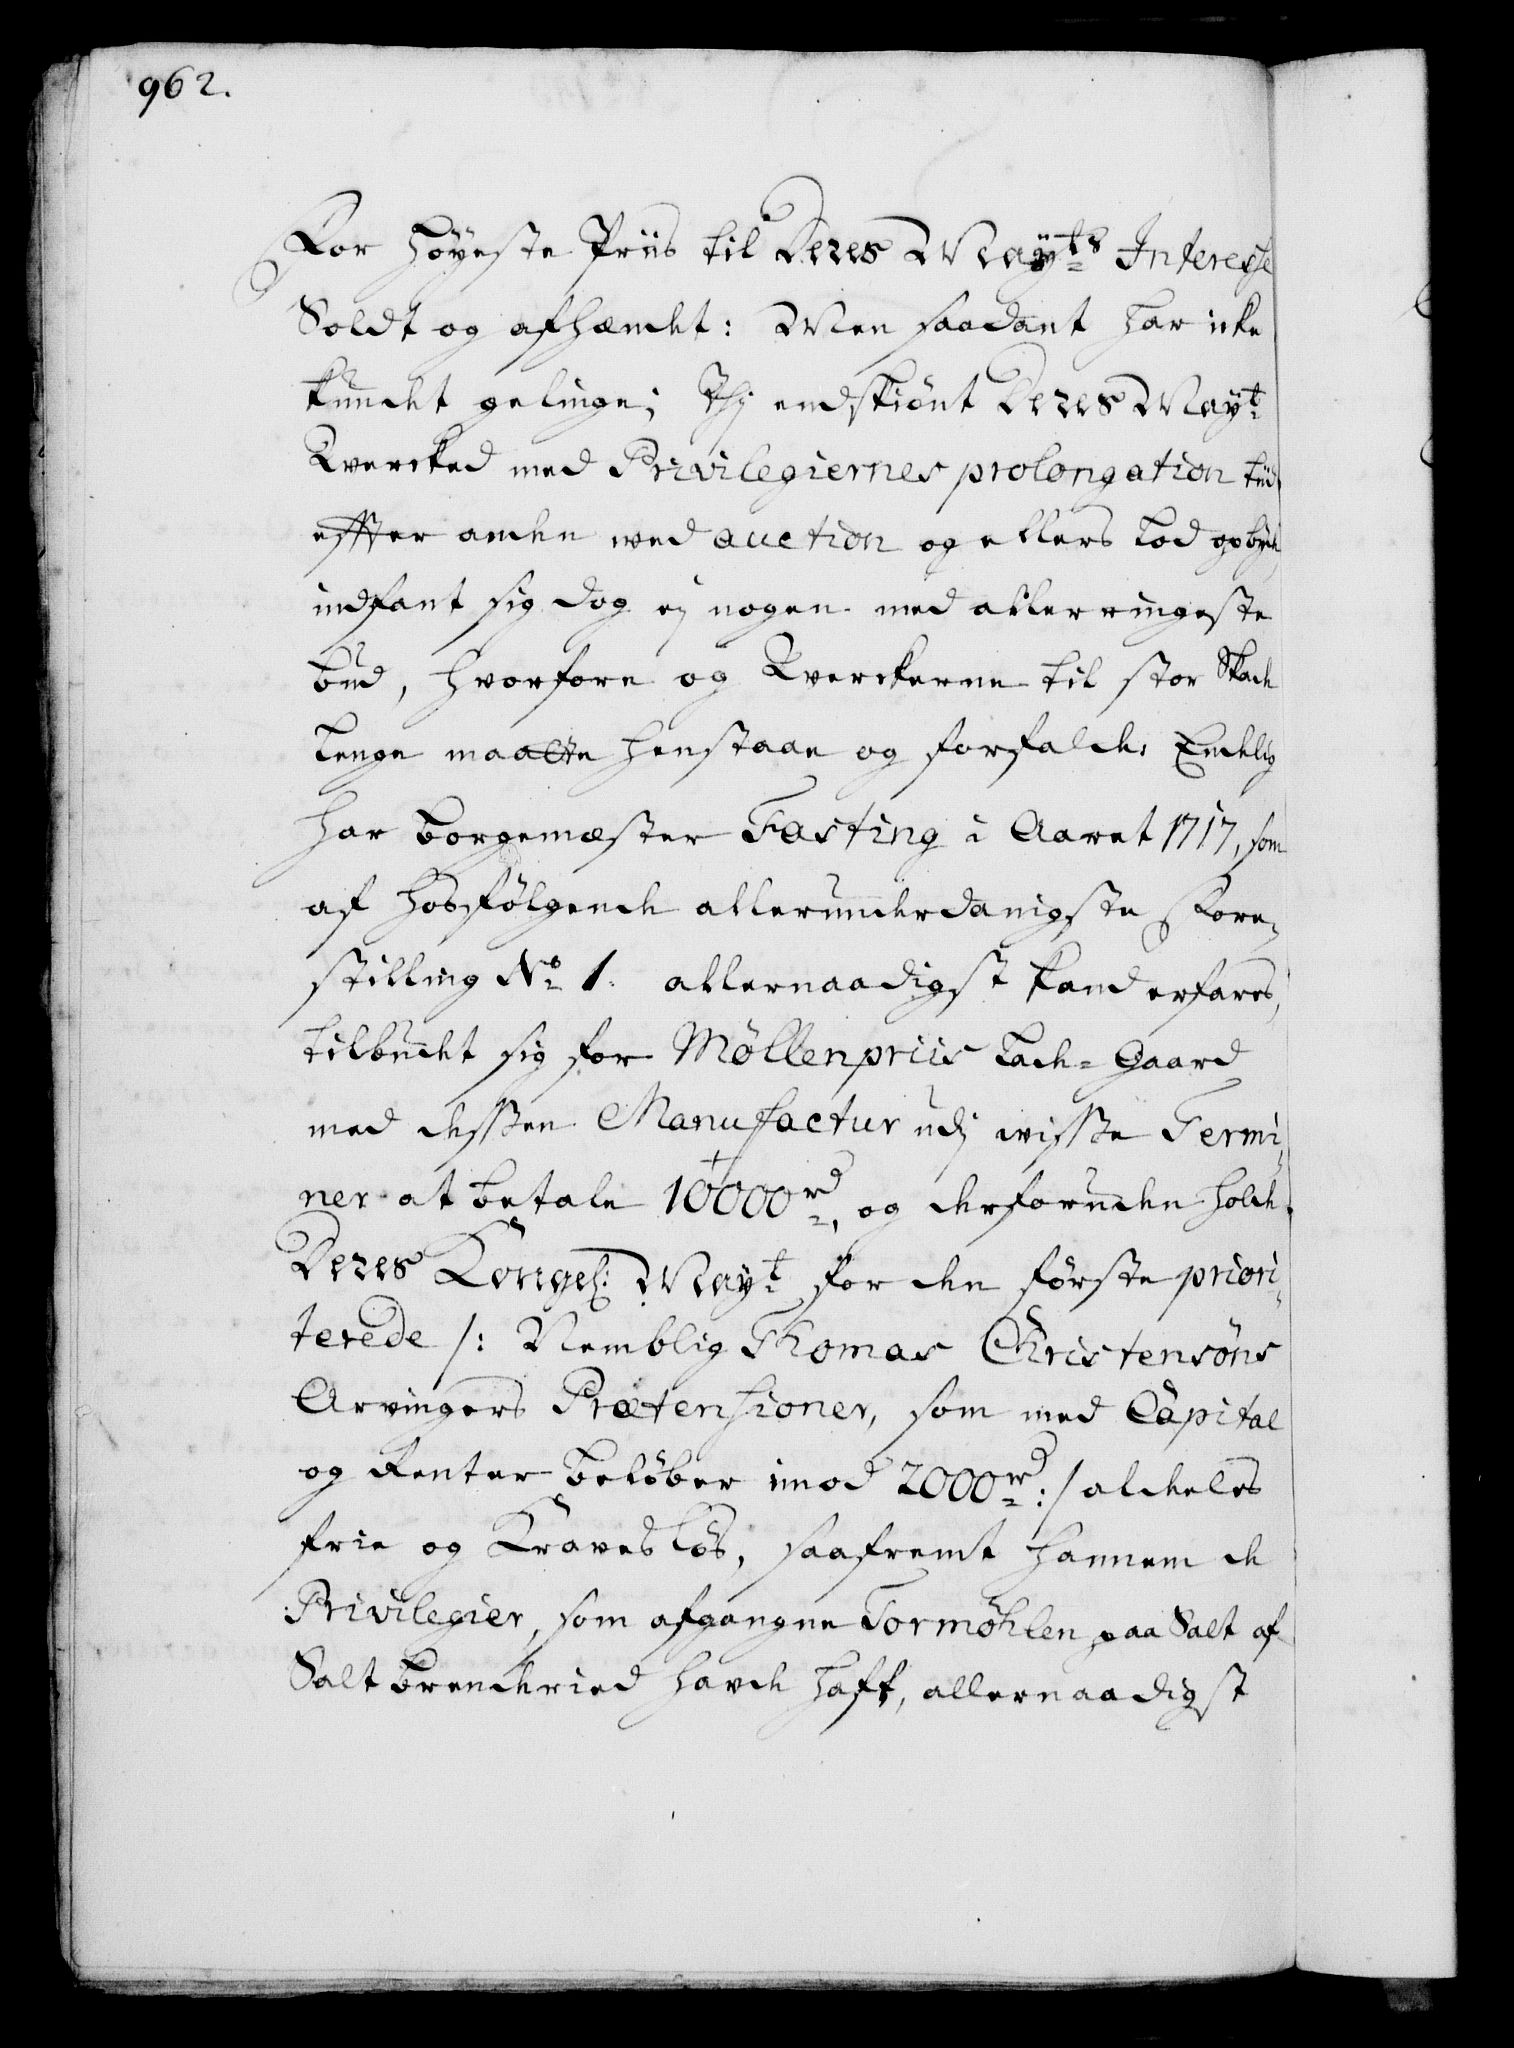 962.
For høyeste Priis til Deres Mayts Interesse
Soldt og afhændt: Men saadant har icke
kundet gelinge; Thj endskiønt Deres Mayt
Qvercked med Privilegiernes prolongation tiid
effter anden wed auction og ellers lod opbyde
indfant sig dog ej nogen med allerringeste
bud, hvorfore og Qverckerne til stor Skade
lenge maatte henstaae og forfalde: Endelig
har borgemæster Fasting i Aaret 1717, som
af hosfølgende allerunderdanigste Fore-
stilling No 1. allernaadigst kand erfares,
tilbudet sig for Møllenpriis Lade-Gaard
med dessen Manufactur udj wisse Termi-
ner at betale 10000 rd, og desforuden holde
Deres Kongel: Mayt for den første priori-
terede /: Nemblig Thomas Christensøns
Arvingers Prætensioner, som med Capital
og Renter beløber imod 2000 rd :/ aldeeles
frie og Kravesløs, saafremt hannem de
Privilegier, som afgangne Tormøhlen paa Salt af
Salt brenderied havde haft, allernaadigst